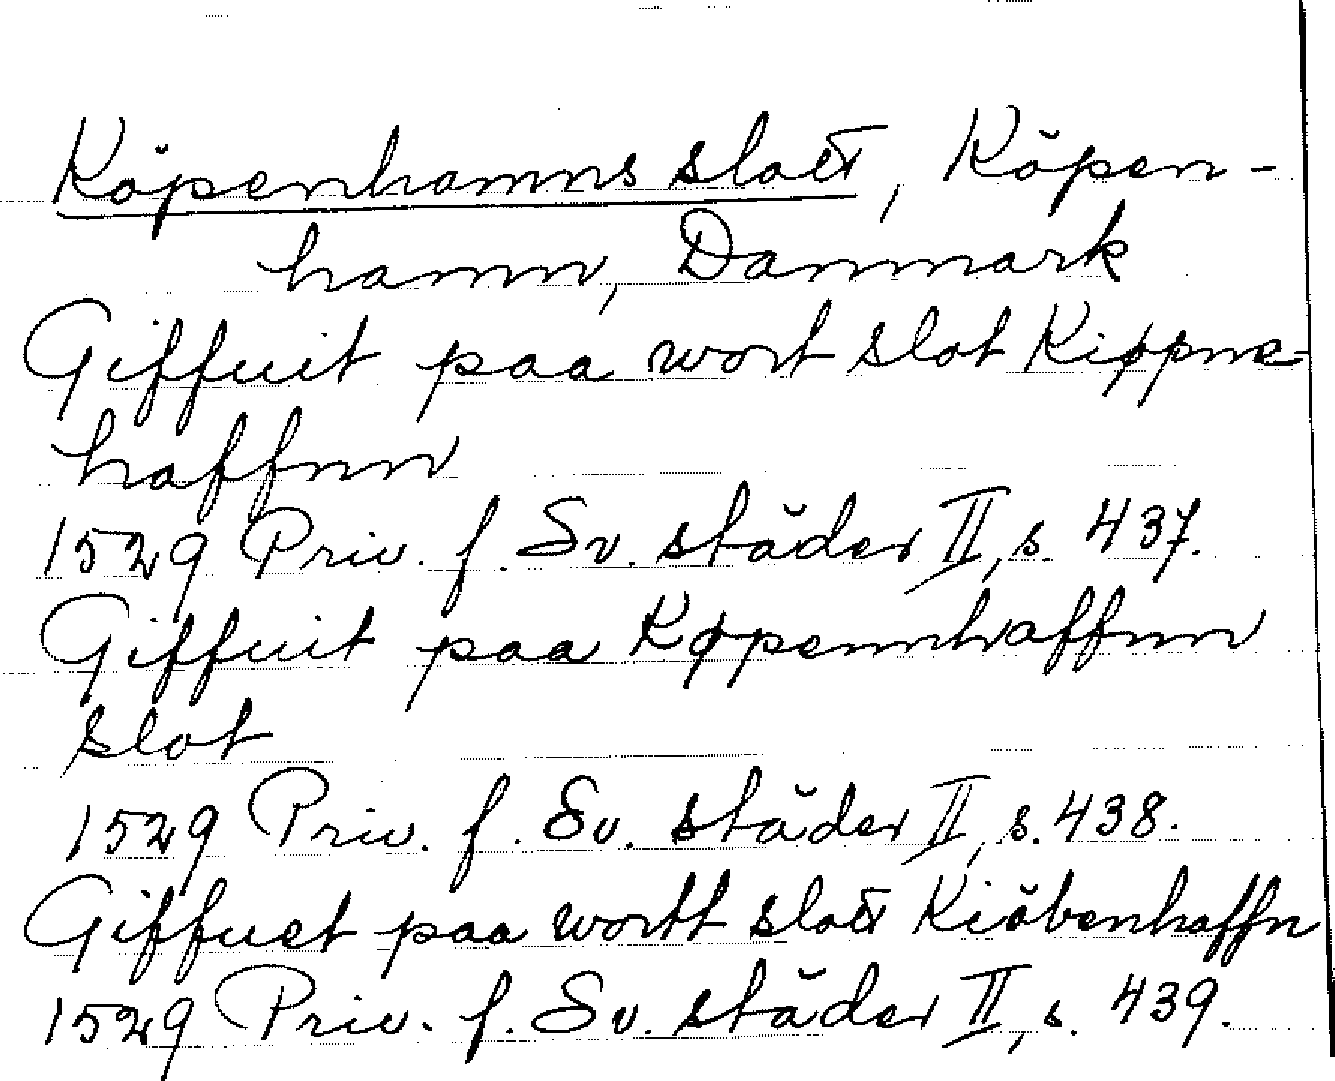 Köpenhamns slott, Köpen-
hamn, Danmark
Giffuit paa wort slot Kiøpne-
haffnn
1529 Priv. f. Sv. städer II, s. 437.
Giffuit paa Køpennhaffnn
slot
1529 Priv. f. Sv. städer II, s. 438.
Giffuet paa wortt slott Kiöbenhaffn
1529 Priv. f. Sv. städer II, s. 439.